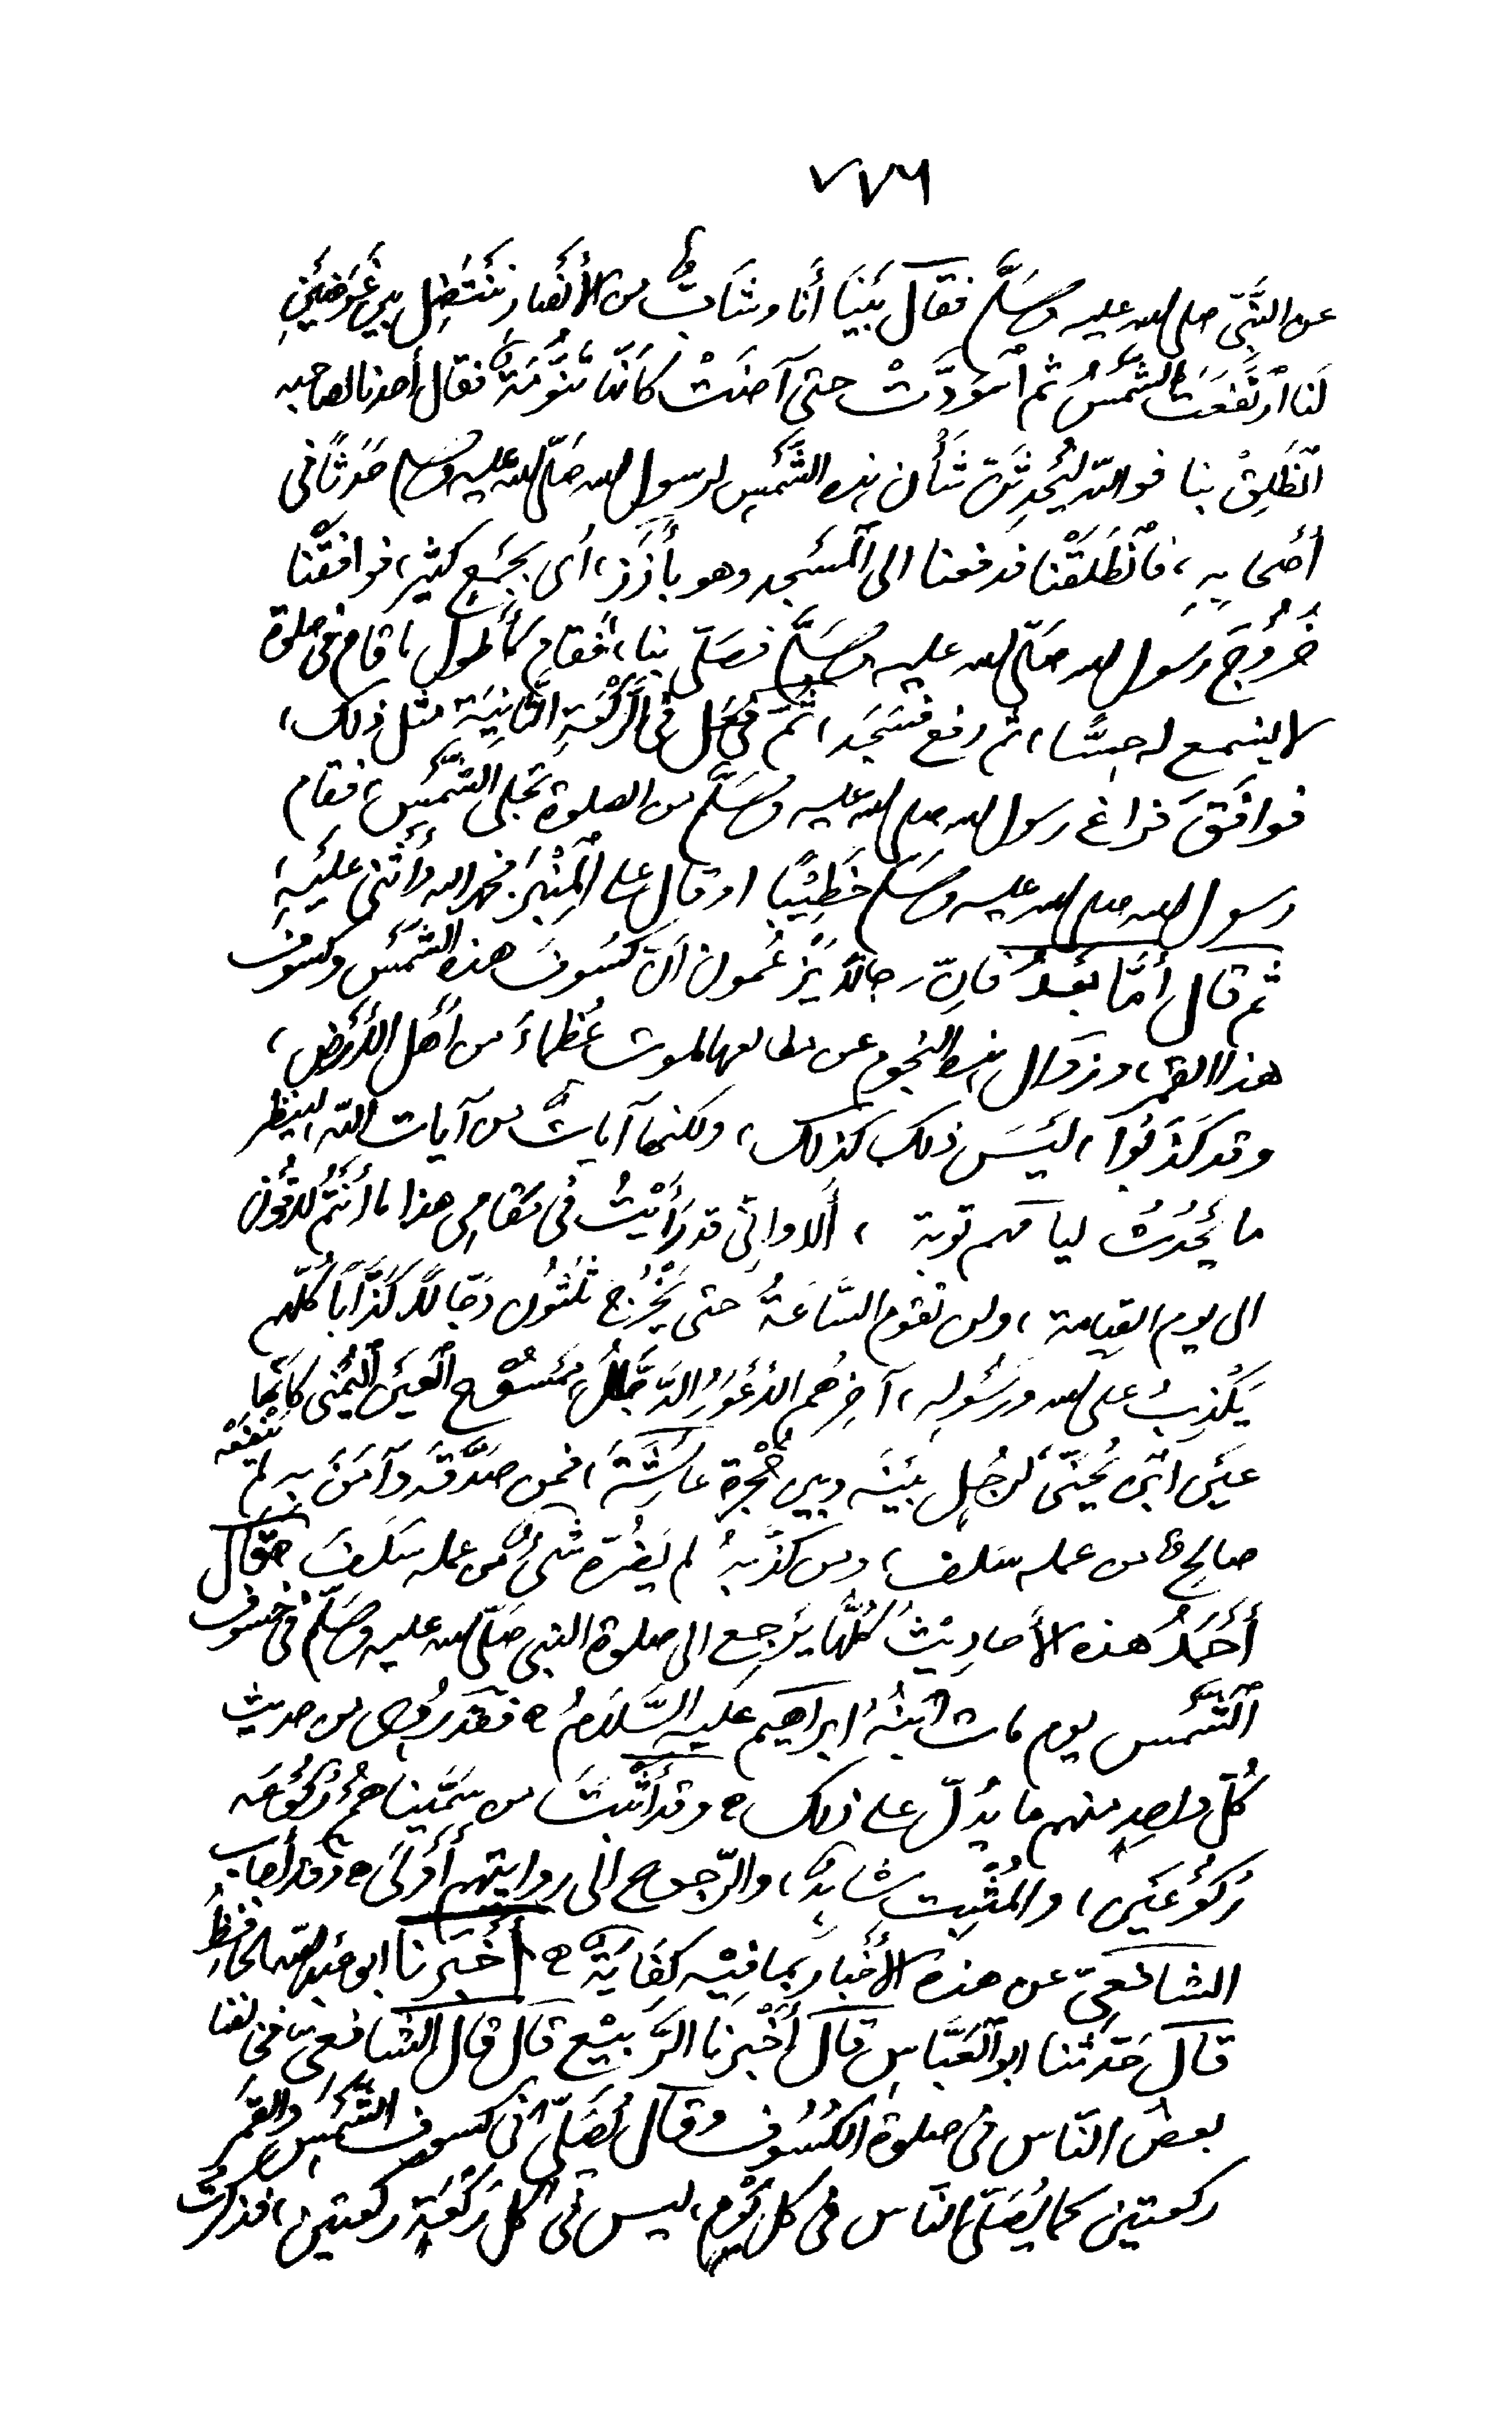 ٧٧٦
عن النَّبيّ صلى الله عليه وسَلَّم فقال بَيْنَا أنا وشَابٌّ من الأنْصَار نَنْتَضِل بين غَرَضَيْنِ
لَنا ٱرْتَفَعَتِ الشَّمْسُ ثم ٱسْوَدَّتْ حتى آضَتْ كَأنَّها تَنُّومَةٌ فقال أحدنا لصاحبه
ٱنْطَلِقْ بنا فوالله لَيُحْدِثَنَّ شَأْن هذه الشَّمْسِ لرسول الله صَلَّى الله عليه وسلم حَدَثًا فى
أصْحابِهِ، فٱنْطَلَقْنا فدفعنا الى ٱلْمَسْجِد وهو بأَزَز، أى بجَمْعٍ كثير، فوافَقْنا
خُرُوجَ رسول الله صَلَّى الله عليه وسَلَّم فصَلَّى بنا، فقام كأطول ما قام فى صلوة
لا يسمع له حِسًّا، ثم رفع فسَجَد، ثُمَّ فَعَل فى الرَّكْعَةِ الثَّانِيَة مثل ذلك،
فوافَقَ فراغ رسول الله صلى الله عليه وسَلَّم من الصلوة تجلى الشَّمْسِ، فقام
رسول الله صلى الله عليه وسلم خَطِيْبًا او قال على المِنْبَر، فحمد الله وأثْنى عليْهِ
ثم قال أمَّا بَعْدُ فإنّ رجالًا يَزْعُمون أنّ كُسُوفَ هذه الشَّمْس وكسوف
هذا القمر، وزوال هذه النجوم عن مطالعها لموت عُظَماءَ من أهْل الأرْض،
وقد كَذَبُوا، لَيْسَ ذلك كذلك، ولكنها آياتٌ من آيات الله، لينظر
ما يُحْدِثُ لها منهم توبة، ألا وإنّى قد رَأيْتُ فى مَقامِى هذا ما أنْتُم لاقُون
الى يوم القيامة، ولن تقوم السَّاعَةُ حتى يَخْرُج ثَلٰثُون دَجَّالًا كَذَّابًا كُلّهم
يَكْذِبُ على الله ورَسُولِه، آخِرُهُم الأعْوَرُ الدَّجَّالُ، مَمْسُوْح الْعَيْن الْيُمْنى كأنّها
عَيْن ابى يُحَيّى لرَجُلٍ بَيْنَه وبين حُجْرَة عائشَةَ، فمن صَدَّقَه وآمَنَ به لم يَنْفَعْه
صالِحٌ من عمله سَلف، ومن كذَّبهُ لم يَضُرّه شىءٌ من عمله سَلَفَ قال
أَحْمَدُ هذه الأحادِيْثُ كُلُّها يَرْجِع الى صلوة النبى صَلّى الله عليه وسَلّم فى خسوف
الشَّمْس يوم مات ابْنُهُ ابراهيم عليه السَّلَامُ ه فقد رُوِىَ من حديث
كُلّ واحِدٍ منهم ما يدُلّ على ذلك ه وقد أثْبَتَ من سَمَّيناهم رُكُوْعَه
رُكُوْعَيْن، والمُثْبِت شاهِدٌ، والرّجوع الى روايتهم أَوْلىٰ ه وقد أجاب
الشافعىّ عن هذه الأخْبار بِما فيْه كِفَايَةٌ ه أخْبَرنا ابو عَبْدِ الله الحافِظُ
قال حَدّثنا ابو الْعَبَّاسِ قال أخْبَرَنَا الرَّبِيْع قال قال الشافعىّ فخالفنا
بعضُ النَّاس فى صلوة الكُسُوْف وقال نُصَلّى فى كسوف الشَّمْسِ والقَمَر
ركعتين كما يُصَلّى النّاس فى كل يَوْمٍ، ليس فى كل رَكْعَةٍ ركعتين، فذكرتُ